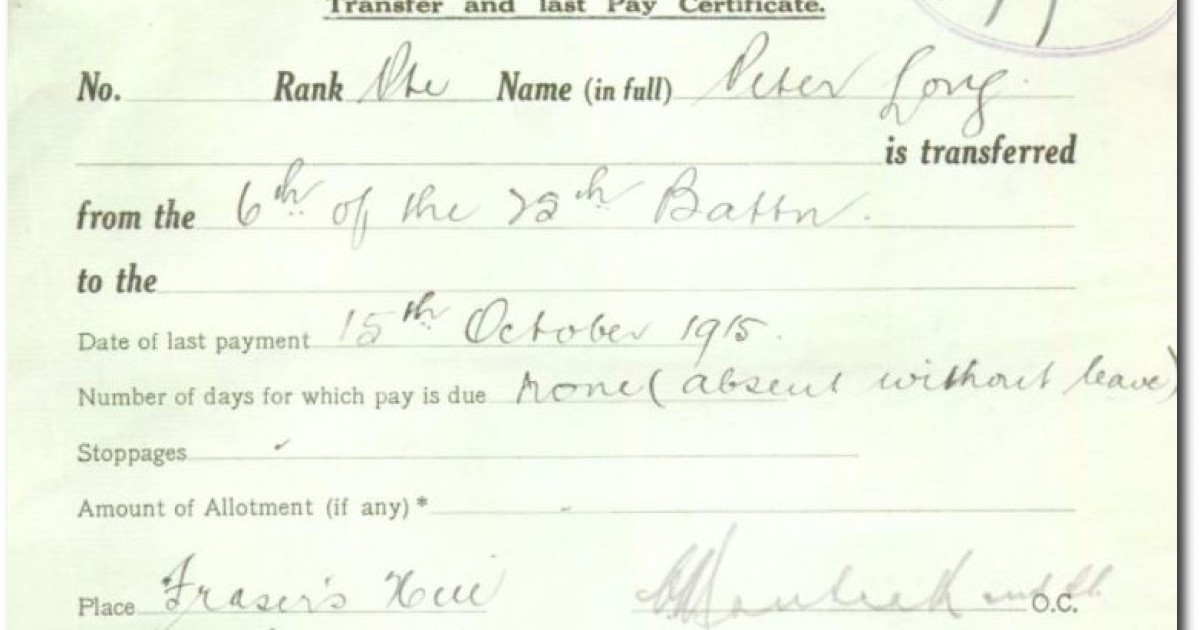 Transfer and last Pay Certificate.
No. Rank Pte Name (in full) Peter Long.
is transferred
from the 6th of the 25th Battn.
to the
Date of last payment 15th October 1915.
Number of days for which pay is due none (absent without leave)
Stoppages
Amount of Allotment (if any) *
Place Fraser's Hill O.C.